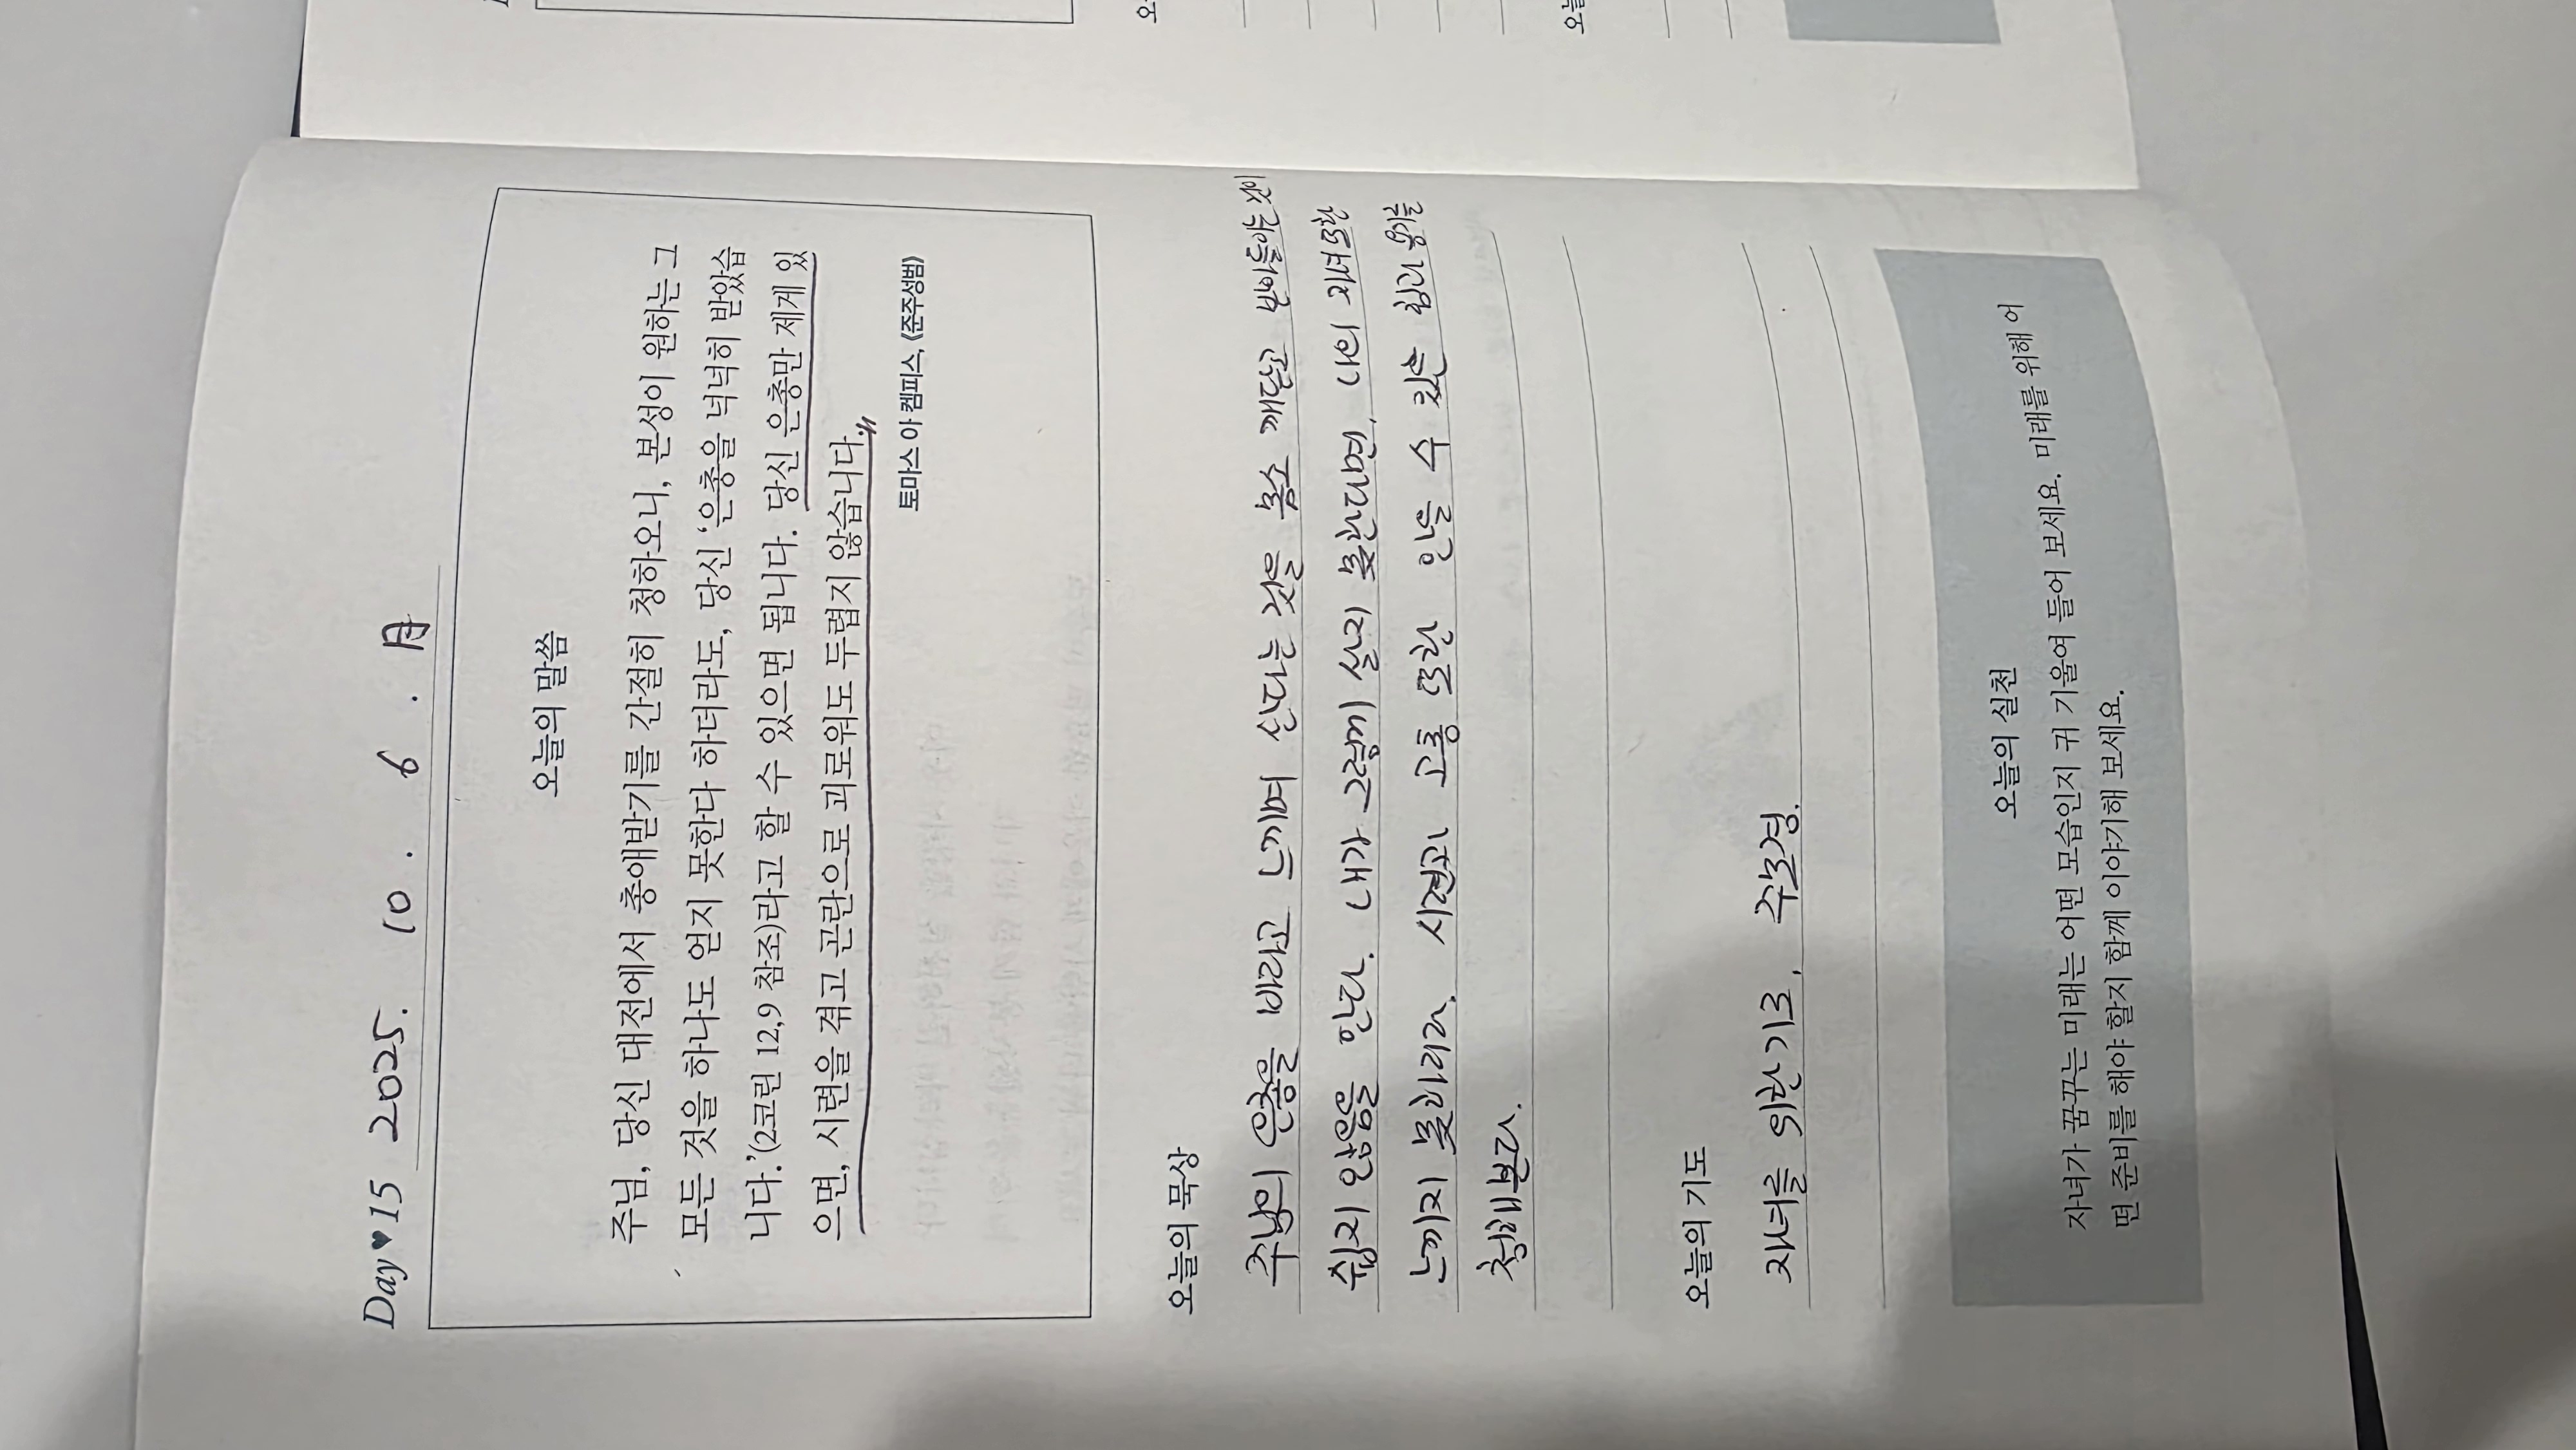 Day♥15 2025. 10. 6. 月
오늘의 말씀
주님, 당신 대전에서 총애받기를 간절히 청하오니, 본성이 원하는 그
모든 것을 하나도 얻지 못한다 하더라도, 당신 ‘은총을 넉넉히 받았습
니다.’(2코린 12,9 참조)라고 할 수 있으면 됩니다. 당신 은총만 제게 있
으면, 시련을 겪고 곤란으로 괴로워도 두렵지 않습니다.
토마스 아 켐피스, 《준주성범》
오늘의 묵상
주님의 은총을 바라고 느끼며 산다는 것을 몸소 깨닫고 받아들이는 것이
쉽지 않음을 안다. 내가 그렇게 살지 못한다면, 나의 자녀 또한
느끼지 못하리라. 시련과 고통 또한 안을 수 있는 힘과 용기를
청해본다.
오늘의 기도
자녀를 위한 기도, 주모경.
오늘의 실천
자녀가 꿈꾸는 미래는 어떤 모습인지 귀 기울여 들어 보세요. 미래를 위해 어
떤 준비를 해야 할지 함께 이야기해 보세요.